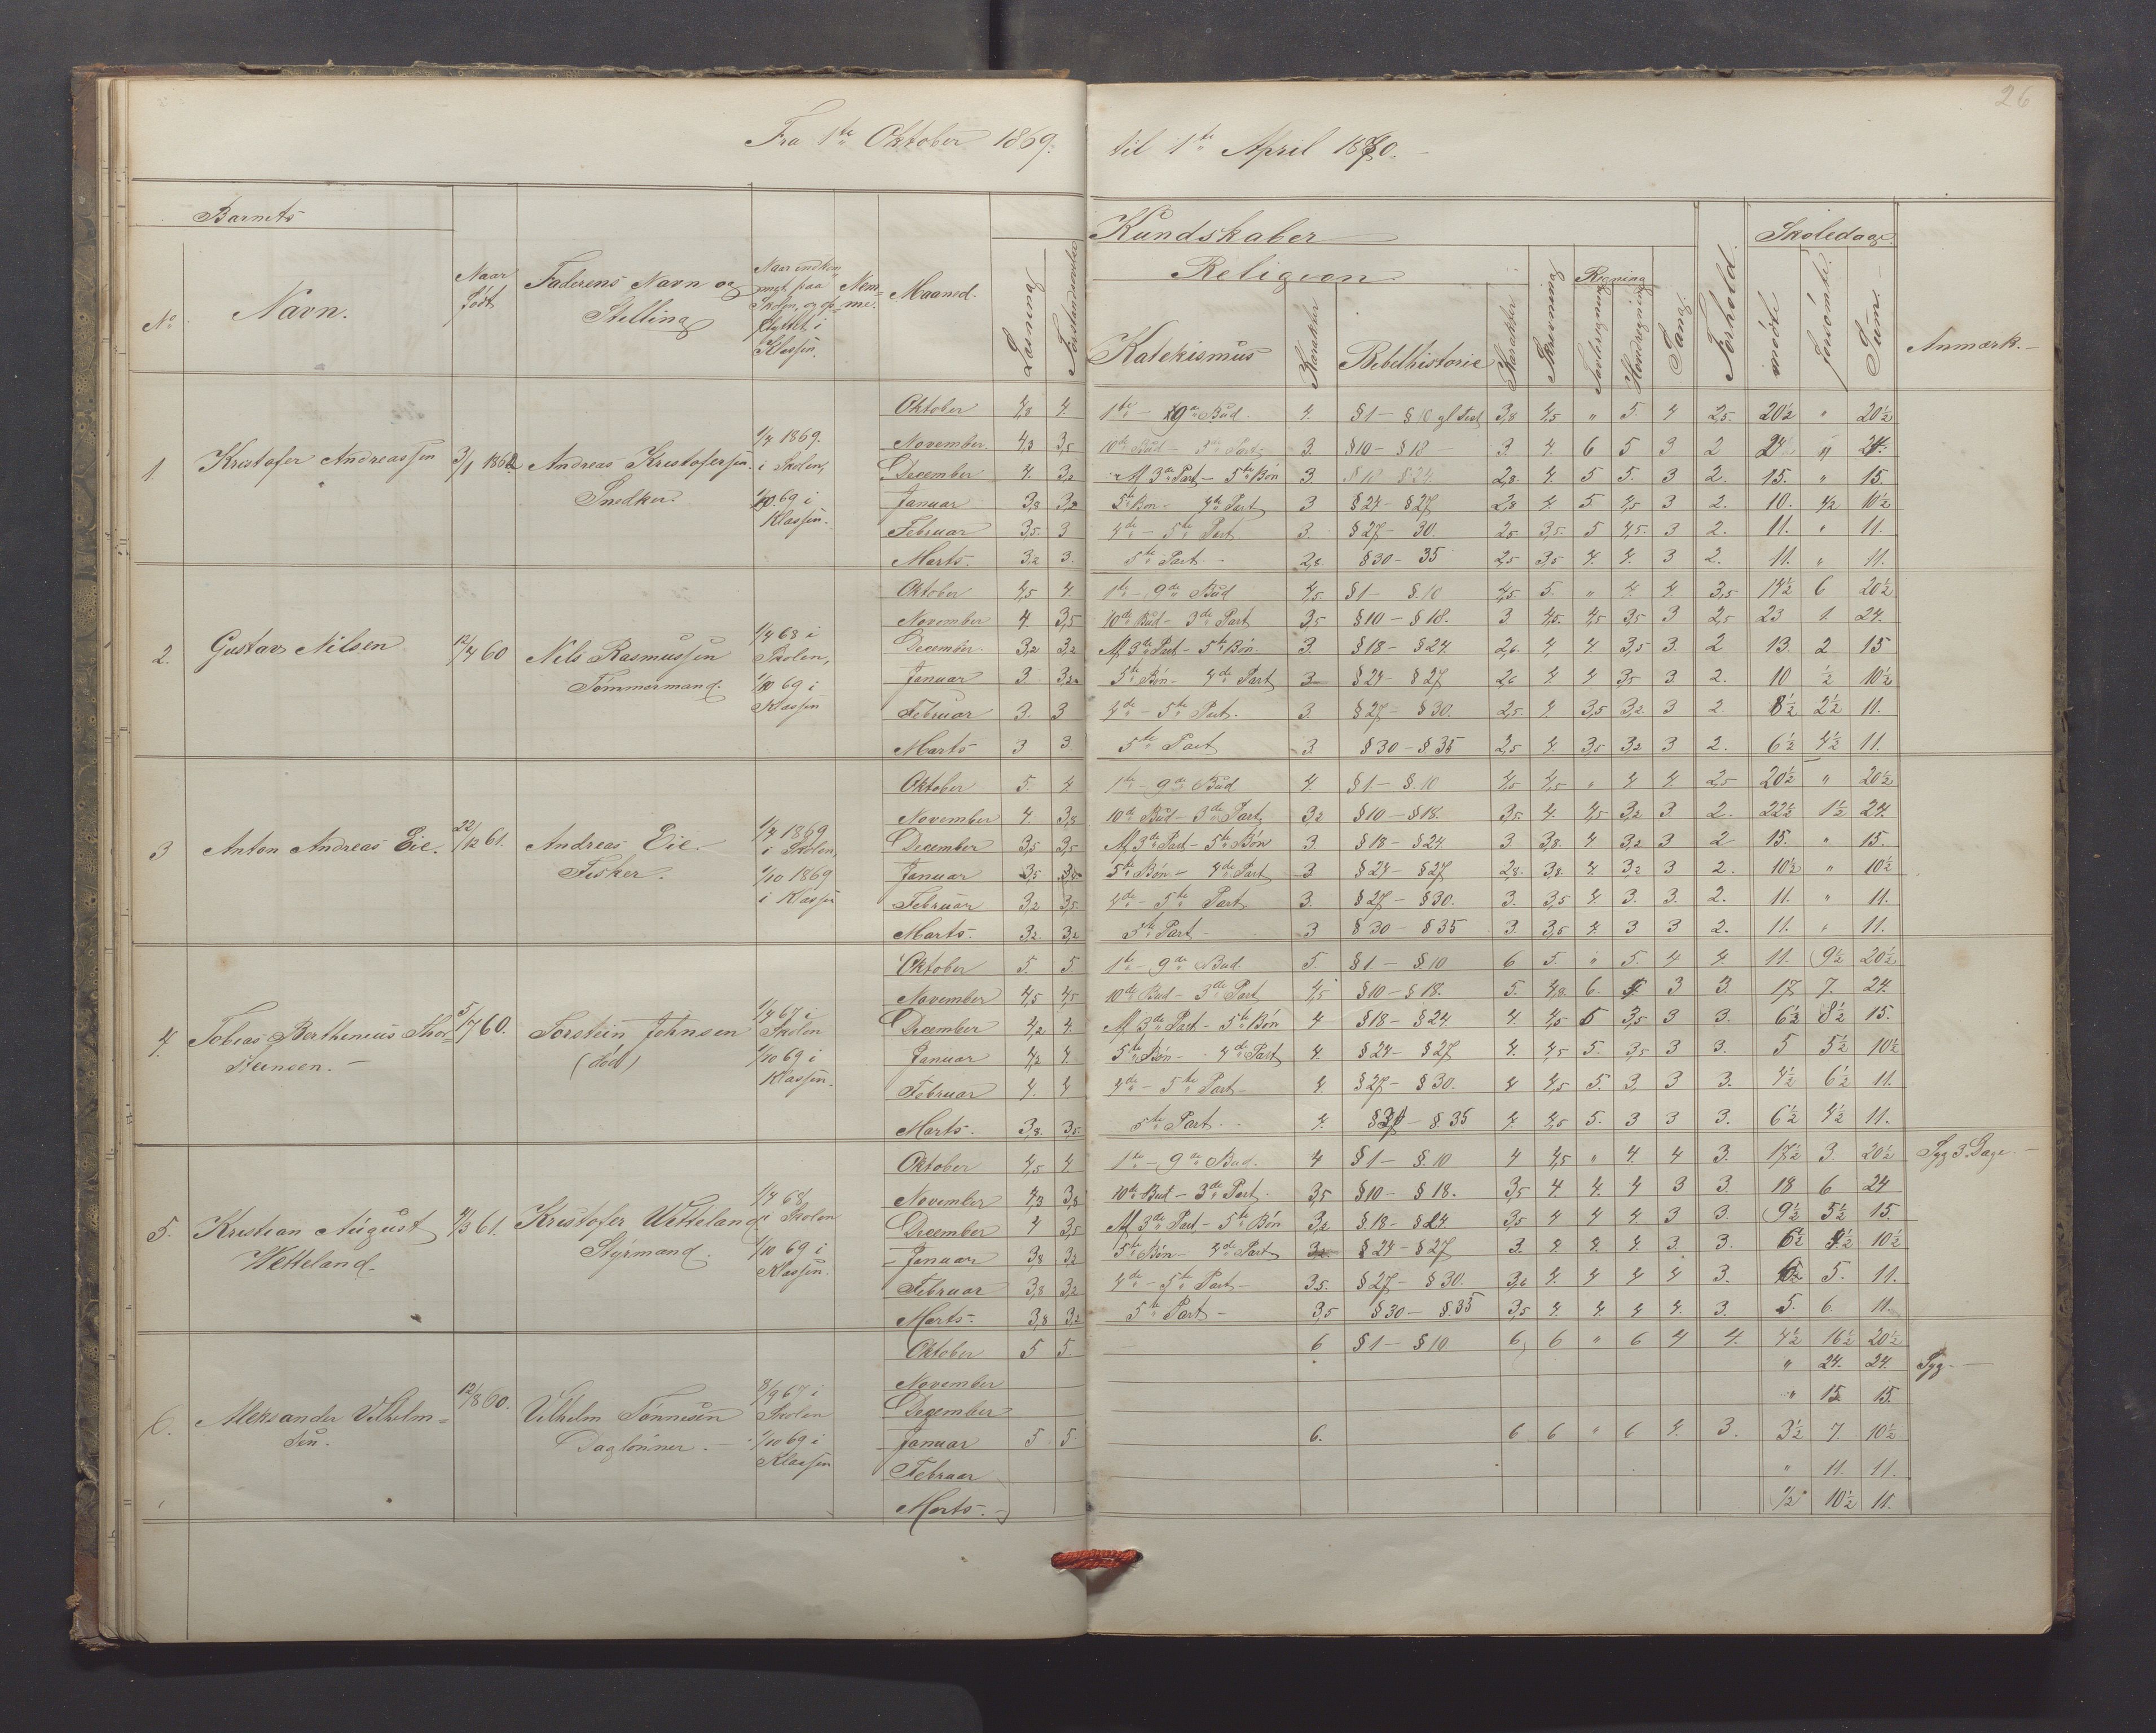 26
Fra 1ste Oktober 1869. til 1ste April 1870.
Barnets
Kundskaber
Skoledage.
No
Navn.
Naar født
Faderens Navn og Stilling
Naar indkommet paa Skolen, og opflyttet i Klassen.
Nemme.
Maaned.
Læsning
Forstandsøvelse
Religion
Katekismus
Karakter
Bibelhistorie
Karakter
Skrivning
Regning
Tavleregning
Hovedregning
Sang.
Forhold.
mødte
forsømte.
Sum.
Anmærk.
1. Kristofer Andreassen 3/1 1860 Andreas Kristofersen. Snedker. 1/4 1869. i Skolen, 1/10 69 i Klassen.
Oktober 4,8 4. 1ste - 9de Bud. 4. § 1 - § 10 gl. Test 3,8 4,5 " 5. 4 2,5. 20½ " 20½
November. 4,3 3,5 10de Bud - 3de Part 3. § 10 - § 18 3. 4. 6 5 3 2 24 " 24.
December 4. 3,2 M 3de Part - 5te Bøn 3. § 18 - § 24 2,8. 4. 5 5. 3 2. 15. " 15.
Januar 3,8 3,2 5te Bøn - 4de Part 3 § 24 - § 27 2,8 4. 5 4,5 3 2. 10. ½ 10½
Februar 3,5. 3 4de - 5te Part 3. § 27 - 30. 2,5 3,5. 5 4,5. 3 2. 11. " 11.
Marts. 3,2 3. 5te Part. 2,8. § 30 - 35 2,5 3,5 4. 4. 3 2. 11. " 11.
2. Gustav Nilsen 12/4 60 Nils Rasmussen Tømmermand. 1/4 68 i Skolen, 1/10 69 i Klassen
Oktober 4,5 4. 1ste - 9de Bud 4,5. § 1 - §. 10 4,5. 5. " 4. 4. 3,5 14½ 6 20½
November 4 3,5 10de Bud - 3de Part 3,5 § 10 - § 18. 3. 4,5. 4,5 3,5 3 2,5 23 1. 24.
December. 3,2 3,2 M. 3de Part - 5te Bøn. 3. § 18 - § 24. 2,6. 4. 4. 3,5 3. 2 13. 2 15
Januar 3. 3,2 5te Bøn - 4de Part 3 § 24 - § 27 2,6 4. 4 3,5 3. 2. 10 ½ 10½
Februar 3. 3 4de - 5te Part. 3. § 27 - § 30. 2,5. 4. 3,5 3,2 3 2. 8½ 2½ 11.
Marts 3 3. 5te Part 3. § 30 - § 35 2,5 4. 3,5 3,2 3 2. 6½ 4½ 11.
3 Anton Andreas Eie. 22/12 61. Andreas Eie. Fisker. 1/4 1869 i Skolen, 1/10 1869 i Klassen
Oktober 5. 4 1ste - 9de Bud 4. § 1 - §. 10 4,5 4,5 " 4 4. 2,5 20½ " 20½
November 4. 3,8 10de Bud - 3de Part 3,2 § 10 - § 18. 3,5. 4. 4,5 3,2 3. 2. 22½ 1½ 24.
December 3,5 3,5 M 3de Part - 5te Bøn 3. § 18 - § 24. 3. 3,8. 4 3,2 3 2 15. " 15.
Januar 3,5 3,5 5te Bøn - 4de Part 3 § 24 - § 27 2,8. 3,8. 4. 3,2 3 2. 10½ " 10½
Februar 3,2 3,5 4de - 5te Part 3. § 27 - § 30. 3. 3,5 4. 3. 3. 2. 11. " 11.
Marts. 3,2. 3,2 5te Part - 3 § 30 - § 35 3. 3,5 4. 3 3 2. 11. " 11.
4. Tobias Berthinius Thorsteinsen. 5/7 60. Torstein Johnsen (død) 1/4 67 i Skolen 1/10 69 i Klassen.
Oktober 5. 5. 1ste - 9de Bud. 5. § 1. - §. 10 6 5. " 5. 4 4. 11. 9½ 20½
November 4,5 4,5 10de Bud - 3de Part 4,5 § 10 - § 18. 5. 4,8. 6. 3 3. 17 7. 24.
December 4,2 4. M. 3de Part - 5te Bøn 4 § 18 - § 24. 4. 4,5 5 3,5 3 3. 6½ 8½ 15.
Januar 4,2 4 5te Bøn - 4de Part 4. § 24 - § 27 4. 4,5 5. 3,5 3 3. 5 5½ 10½
Februar 4. 4 4de - 5te Part - 4. § 27 - § 30. 4 4,5 5. 3. 3 3. 4½ 6½ 11.
Marts. 3,8. 3,5 5te Part. 4. § 30 - §. 35 4. 4,5 5. 3 3 3. 6½ 4½ 11.
5. Kristian August Wetteland. 61. Kristofer Wetteland Styrmand. 1/4 68, i Skolen 1/10 69 i Klassen.
Oktober 4,5 4. 1ste - 9de Bud. 4 § 1 - §. 10 4 4,5 " 4. 4 3. 17½ 3. 20½ Syg 3 Dage.
November 4,3 3,8 10de Bud - 3de Part. 3,5 § 10 - § 18. 3,5 4. 4. 4 3 3. 18 6 24
December 4 3,5 M 3de Part - 5te Bøn 3,2 § 18 - § 24. 3,5 4 4 4. 3 3. 9½ 5½ 15.
Januar 3,8 3,2 5te Bøn - 4de Part § 24 - § 27 3. 4. 4. 4. 3. 3. 6½ 4½ 10½
Februar 3,8 3,2 4de - 5te Part - 3,5. § 27 - § 30. 3,6 4. 4 4 4 3. 5. 11.
Marts. 3,8 3,2 5te Part - 3,5 § 30 - §. 35 3,5 4. 4 4 4. 3. 5. 6. 11.
6. Aleksander Vilhelmsen. 12/8 60. Vilhelm Tønnesen Daglønner. 8/9 67 i Skolen 1/10 69 i Klassen
Oktober 5 5. 6 § 1 - § 10 6, 6 " 6 4 4. 4½ 16½ 20½
November " 24. 24. Syg.
December " 15 15.
Januar 5 5 6. 6 6 " 6 4. 3. 3½ 7. 10½
Februar " 11. 11.
Marts. ½ 10½ 11.